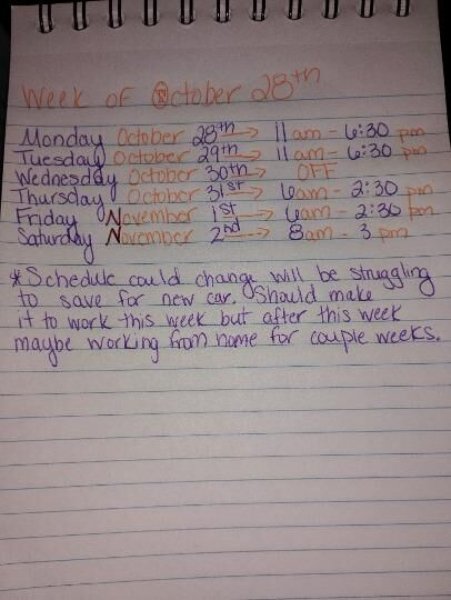 Week of October 28th
Monday October 28th → 11am - 6:30 pm
Tuesday October 29th → 11am - 6:30 pm
Wednesday October 30th → OFF
Thursday October 31st → 6am - 2:30 pm
Friday November 1st → 6am - 2:30 pm
Saturday November 2nd → 8am - 3 pm
*Schedule could change will be struggling
to save for new car. Should make
it to work this week but after this week
maybe working from home for couple weeks.